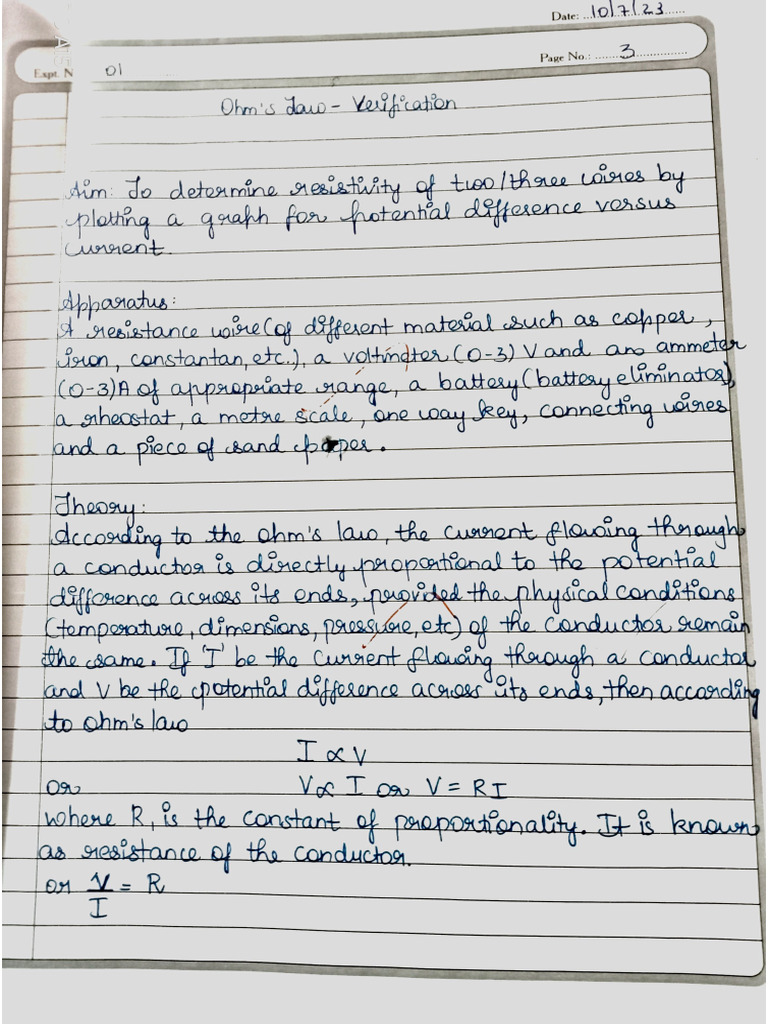 Date: 10/7/23
Expt. N 01
Page No.: 3
Ohm's Law - Verification
Aim: To determine resistivity of two/three wires by
plotting a graph for potential difference versus
current.
Apparatus:
A resistance wire (of different material such as copper,
iron, constantan, etc.), a voltmeter (0-3) V and an ammeter
(0-3)A of appropriate range, a battery (battery eliminator),
a rheostat, a metre scale, one way key, connecting wires
and a piece of sand paper.
Theory:
According to the ohm's law, the current flowing through
a conductor is directly proportional to the potential
difference across its ends, provided the physical conditions
(temperature, dimensions, pressure, etc) of the conductor remain
the same. If 'I' be the current flowing through a conductor
and V be the potential difference across its ends, then according
to ohm's law
I ∝ V
or V ∝ I or V = RI
where R, is the constant of proportionality. It is known
as resistance of the conductor.
or V/I = R